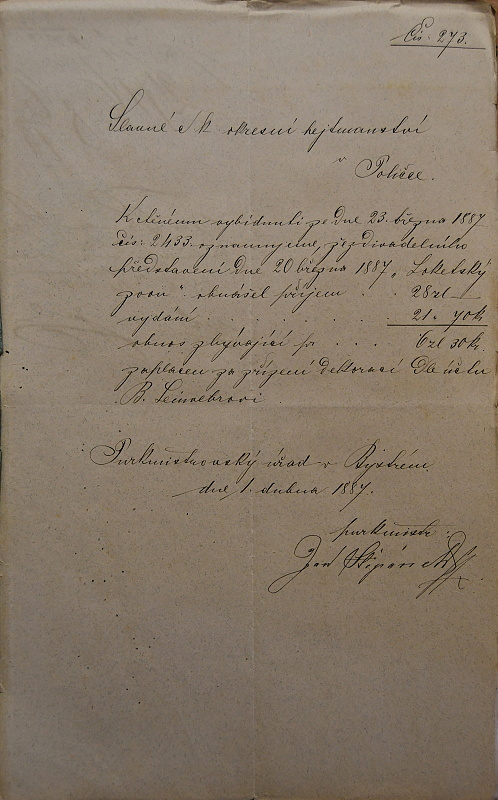 Čís: 273.
Slavné c k okresní hejtmanství
v
Poličce.
K ctěnému vybídnutí ze dne 23. března 1887
čís: 2433. oznamujeme, že z divadelního
představení dne 20 března 1887 „Loketský
zvon" obnášel příjem . . 28 zl —
vydání . . . . . . . 21 „ 70 k
obnos zbývající pr . . . 6 zl 30 k.
zaplacen za zřízení dekorací dle účtu
B.
Purkmistrovský úřad v Bystrém
dne 1. dubna 1887.
purkmistr.
Jan